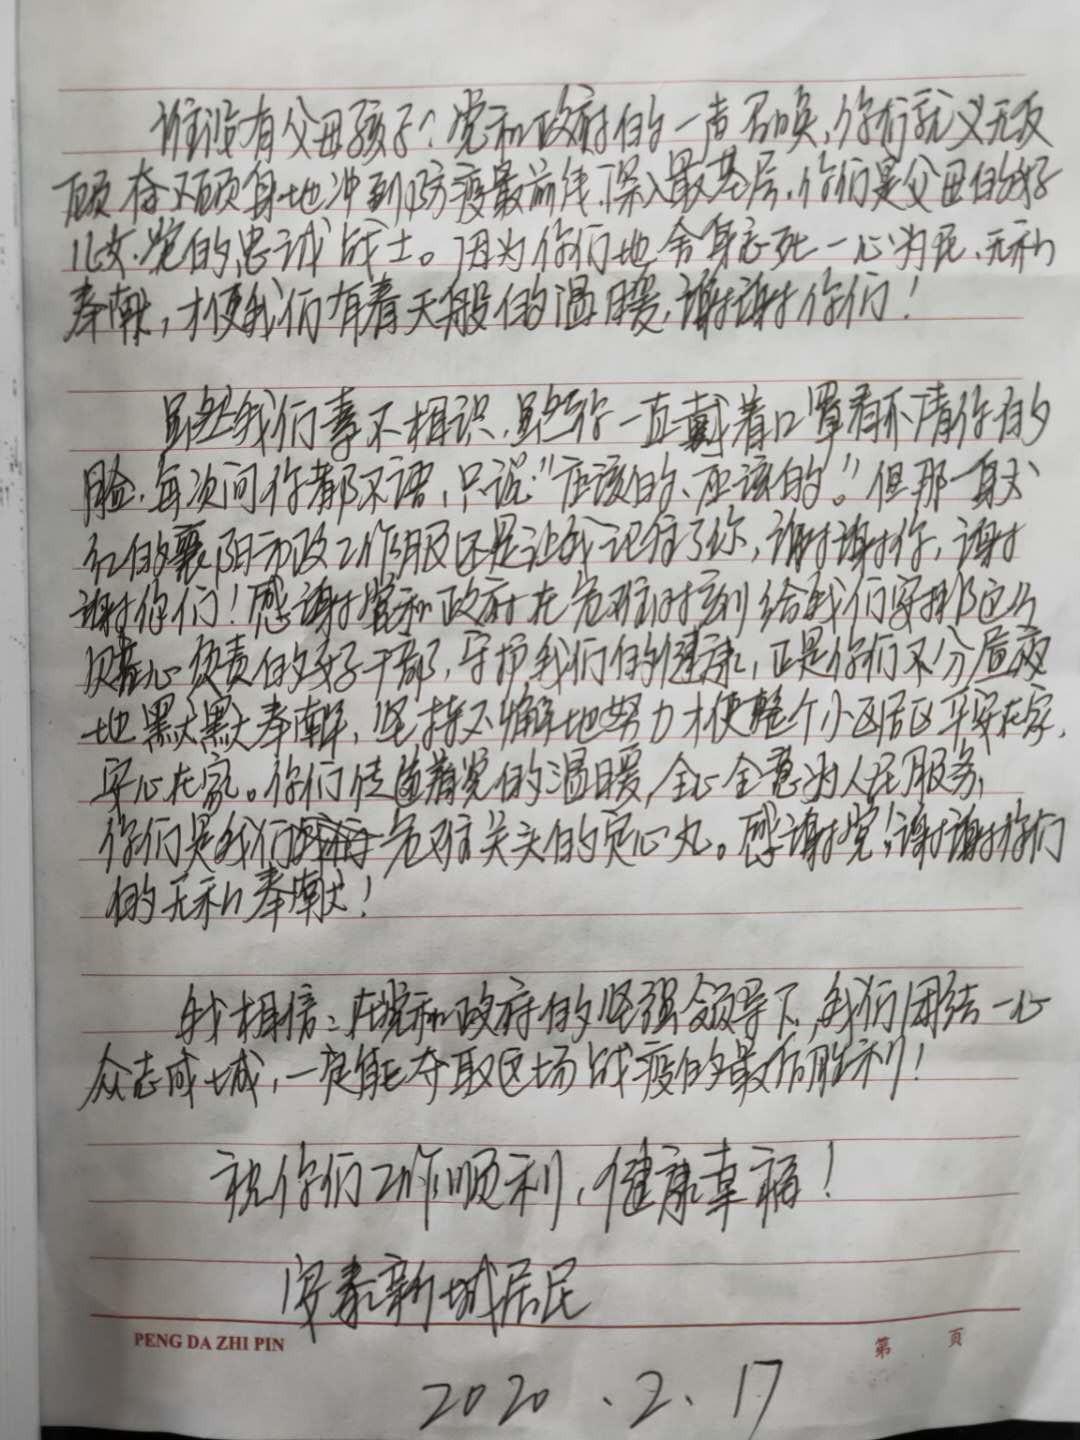 谁没有父母孩子?党和政府的一声召唤,你们就义无反
顾奋不顾身地冲到防疫最前线,深入最基层,你们是父母的好
儿女,党的忠诚战士。因为你们地舍身忘死一心为民、无私
奉献,才使我们有春天般的温暖,谢谢你们!
虽然我们素不相识,虽然你一直戴着口罩看不清你的
脸,每次问你都不语,只说:“应该的、应该的。”但那一身火
红的襄阳市政工作服还是让我记住了你,谢谢你,谢
谢你们!感谢党和政府在危难时刻给我们安排那么
贴心负责的好干部,守护我们的健康,正是你们不分昼夜
地默默奉献,坚持不懈地努力才使整个小区居民平安在家,
安心在家。你们传递着党的温暖,全心全意为人民服务,
你们是我们危难关头的定心丸。感谢党!谢谢你们
的无私奉献!
我相信:在党和政府的坚强领导下,我们团结一心
众志成城,一定能夺取这场战疫的最后胜利!
祝你们工作顺利,健康幸福!
安泰新城居民
PENG DA ZHI PIN 第 页
2020.2.17